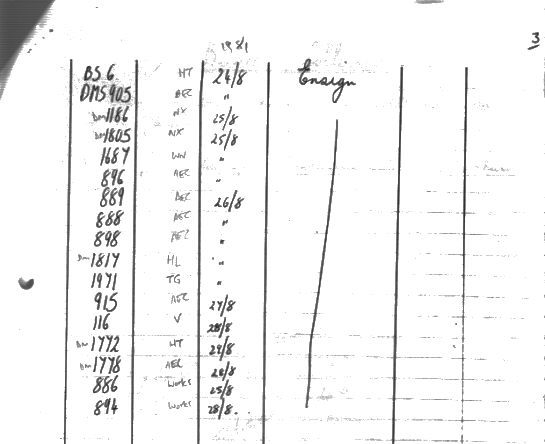 3
1981
BS 6 HT 24/8 Ensign
DMS 905 AEC "
DM 1186 NX 25/8
DM 1805 NX 25/8
1687 WN "
896 AEC "
889 AEC 26/8
888 AEC "
898 AEC "
DM 1817 HL "
1971 TG "
915 AEC 27/8
116 V 28/8
DM 1772 HT 28/8
DM 1778 AEC 28/8
886 Works 25/8
894 Works 28/8